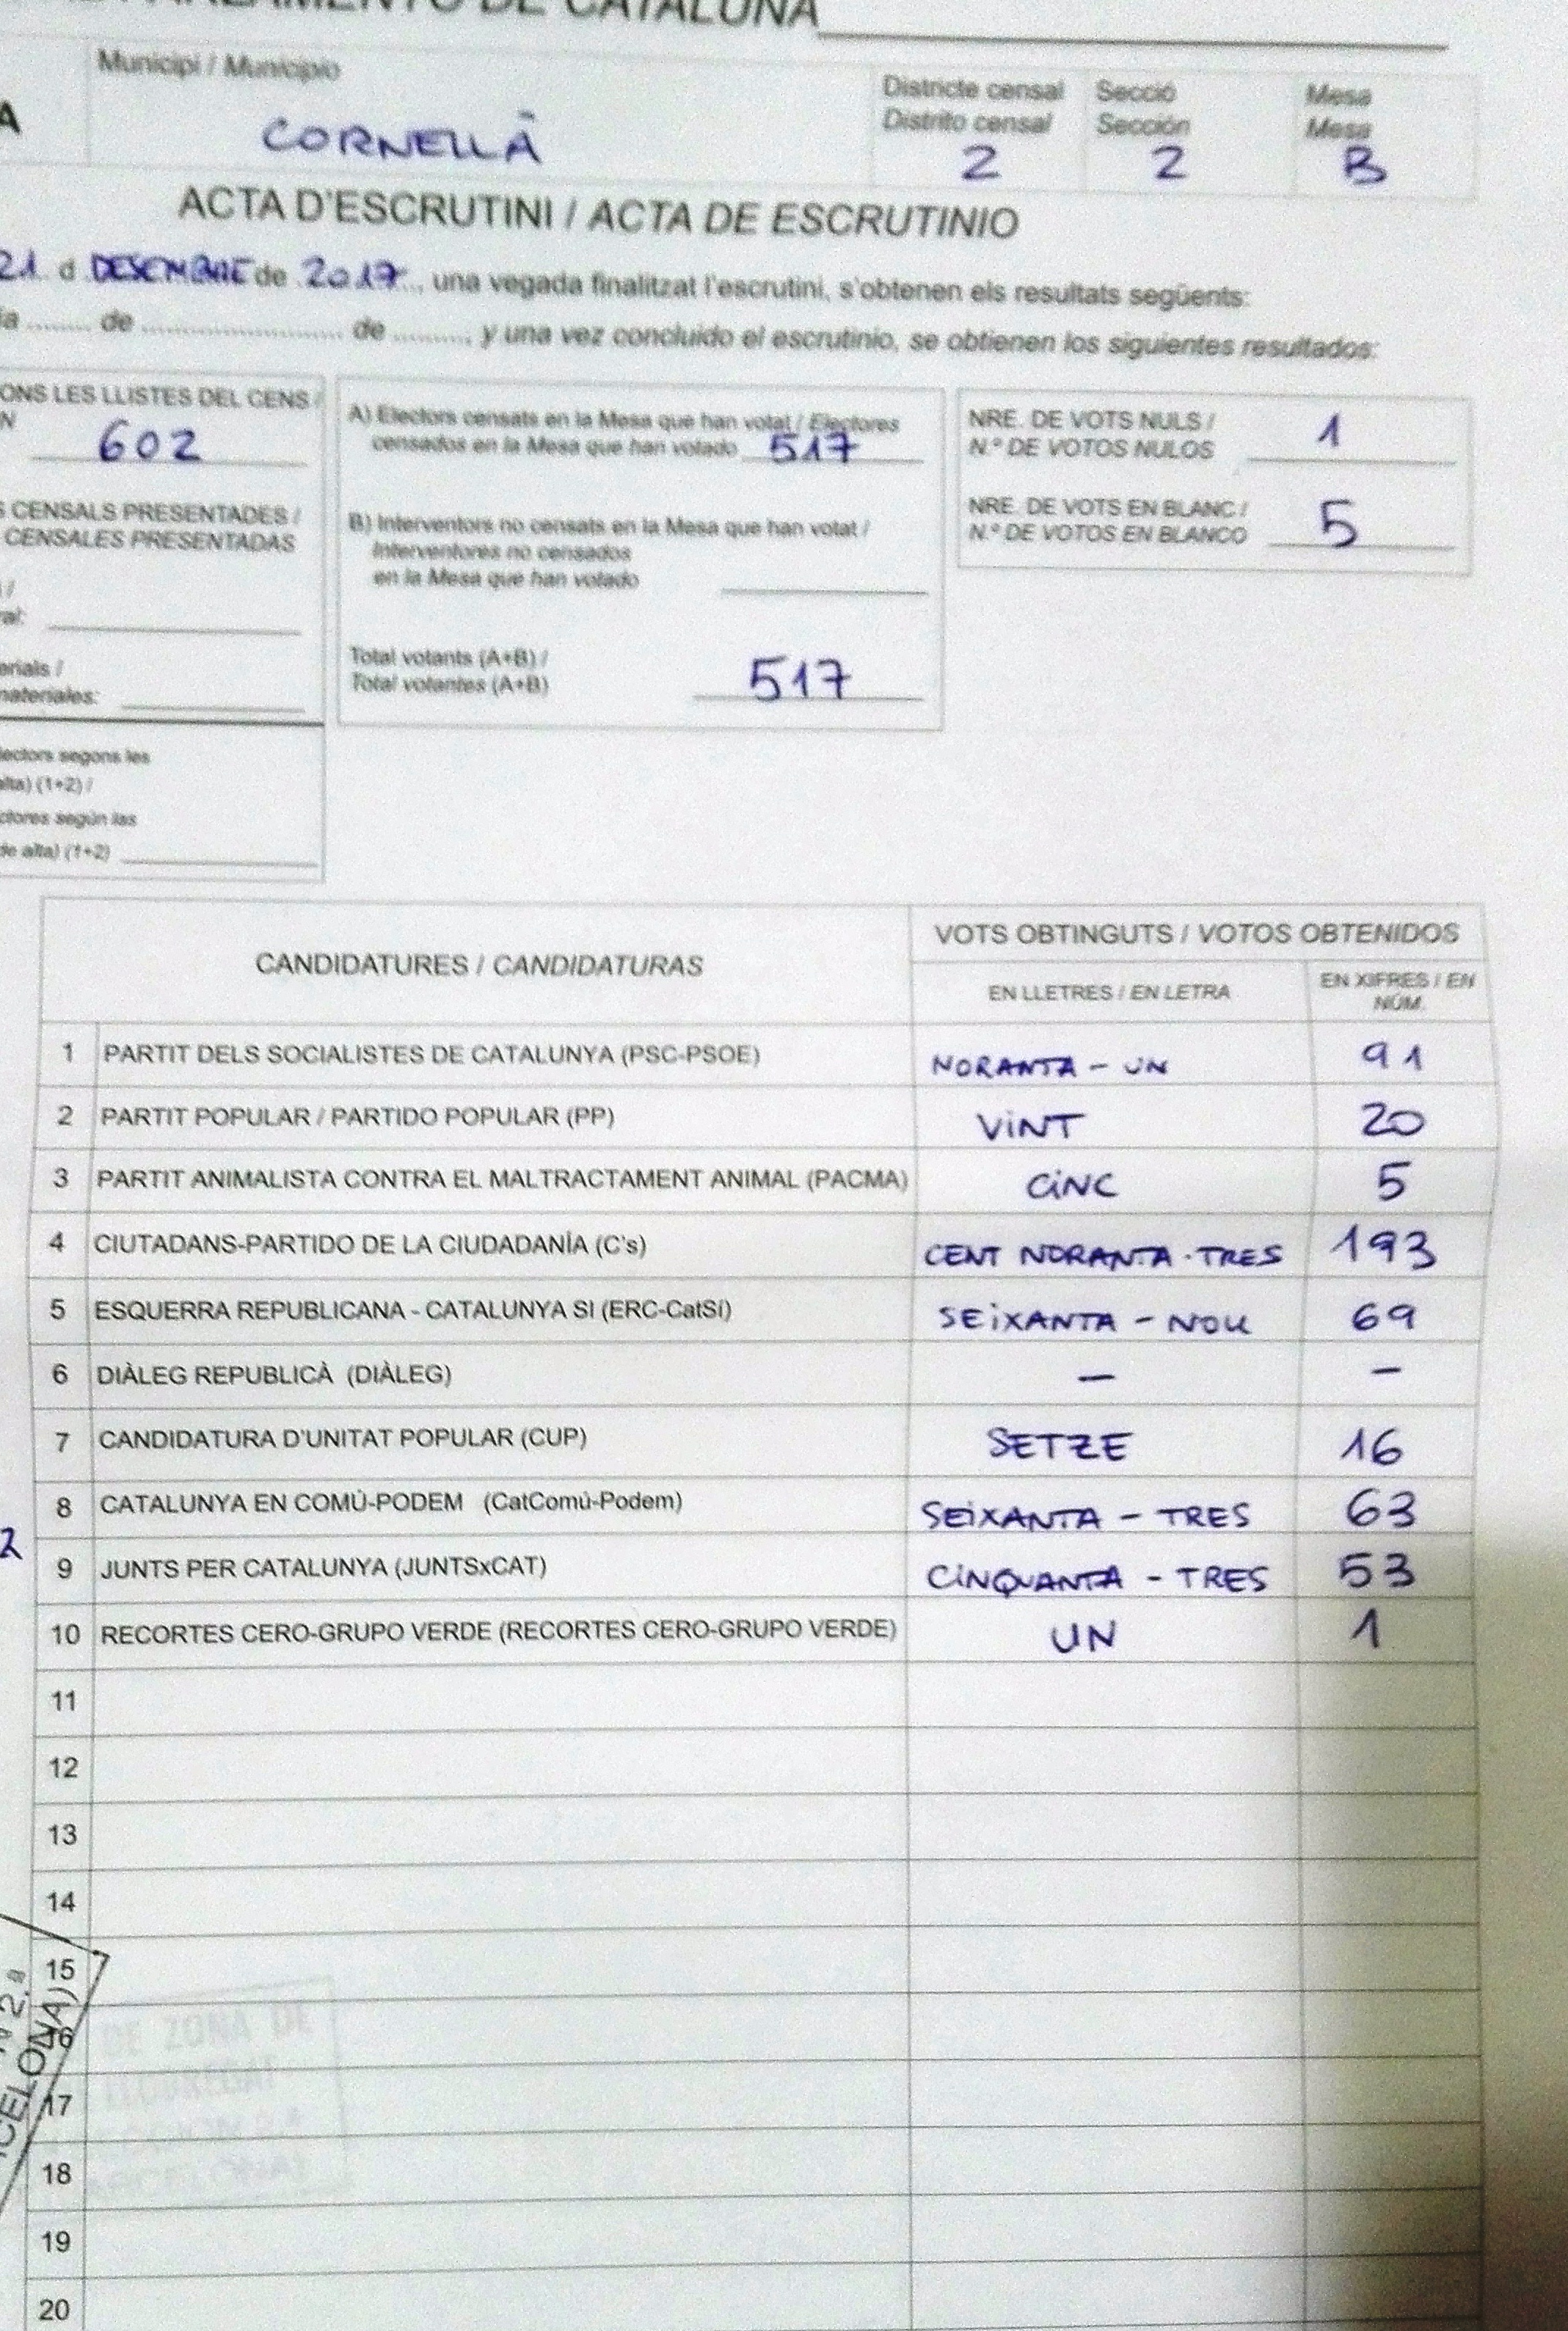 PARLAMENTO DE CATALUÑA
Municipi / Municipio
CORNELLÀ
Districte censal
Distrito censal
2
Secció
Sección
2
Mesa
Mesa
B
A
ACTA D'ESCRUTINI / ACTA DE ESCRUTINIO
21 d DESEMBRE de 2017, una vegada finalitzat l'escrutini, s'obtenen els resultats següents:
de de , y una vez concluido el escrutinio, se obtienen los siguientes resultados:
ONS LES LLISTES DEL CENS /
N
602
CENSALS PRESENTADES /
CENSALES PRESENTADAS
/
ral:
erials /
materiales:
lectors segons les
alta) (1+2) /
ctores según las
de alta) (1+2)
A) Electors censats en la Mesa que han votat / Electores
censados en la Mesa que han votado 517
B) Interventors no censats en la Mesa que han votat /
Interventores no censados
en la Mesa que han votado
Total votants (A+B) /
Total votantes (A+B) 517
NRE. DE VOTS NULS /
N.º DE VOTOS NULOS 1
NRE. DE VOTS EN BLANC /
N.º DE VOTOS EN BLANCO 5
CANDIDATURES / CANDIDATURAS
VOTS OBTINGUTS / VOTOS OBTENIDOS
EN LLETRES / EN LETRA
EN XIFRES / EN
NÚM.
1 PARTIT DELS SOCIALISTES DE CATALUNYA (PSC-PSOE) NORANTA - UN 91
2 PARTIT POPULAR / PARTIDO POPULAR (PP) VINT 20
3 PARTIT ANIMALISTA CONTRA EL MALTRACTAMENT ANIMAL (PACMA) CINC 5
4 CIUTADANS-PARTIDO DE LA CIUDADANÍA (C's) CENT NORANTA-TRES 193
5 ESQUERRA REPUBLICANA - CATALUNYA SI (ERC-CatSí) SEIXANTA - NOU 69
6 DIÀLEG REPUBLICÀ (DIÀLEG) — —
7 CANDIDATURA D'UNITAT POPULAR (CUP) SETZE 16
8 CATALUNYA EN COMÚ-PODEM (CatComú-Podem) SEIXANTA - TRES 63
2
9 JUNTS PER CATALUNYA (JUNTSxCAT) CINQUANTA - TRES 53
10 RECORTES CERO-GRUPO VERDE (RECORTES CERO-GRUPO VERDE) UN 1
11
12
13
14
15
16
17
18
19
20
DE ZONA DE